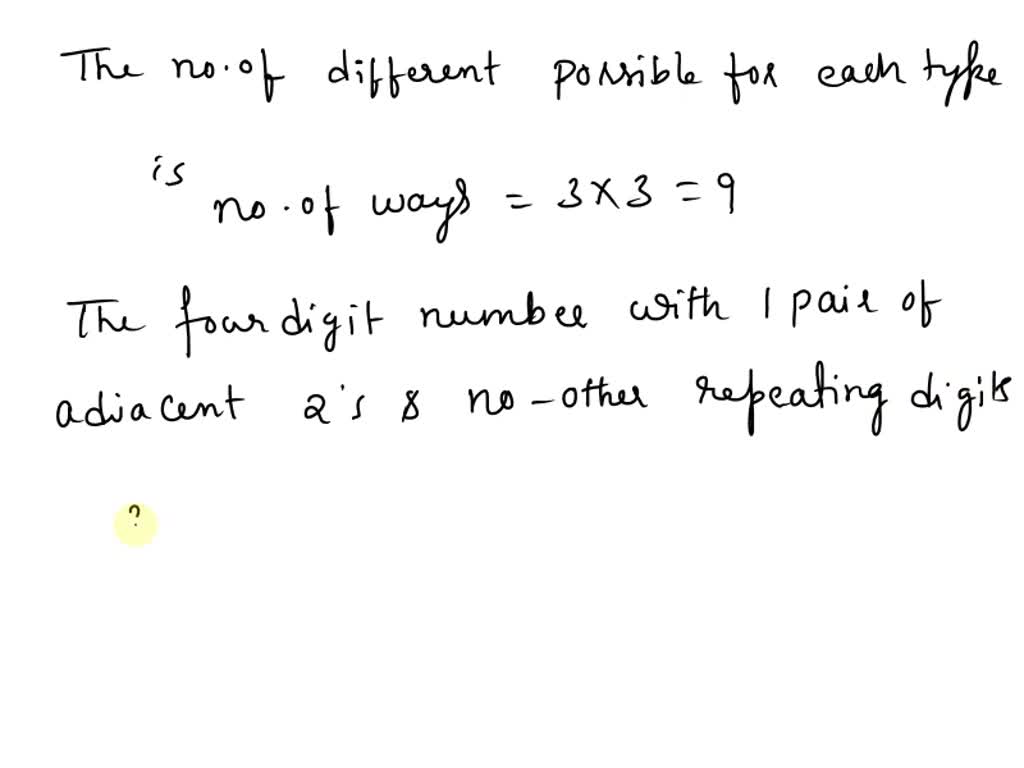 The no. of different possible for each type
is
no. of ways = 3 x 3 = 9
The four digit number with 1 pair of
adjacent 2's & no-other repeating digits
?